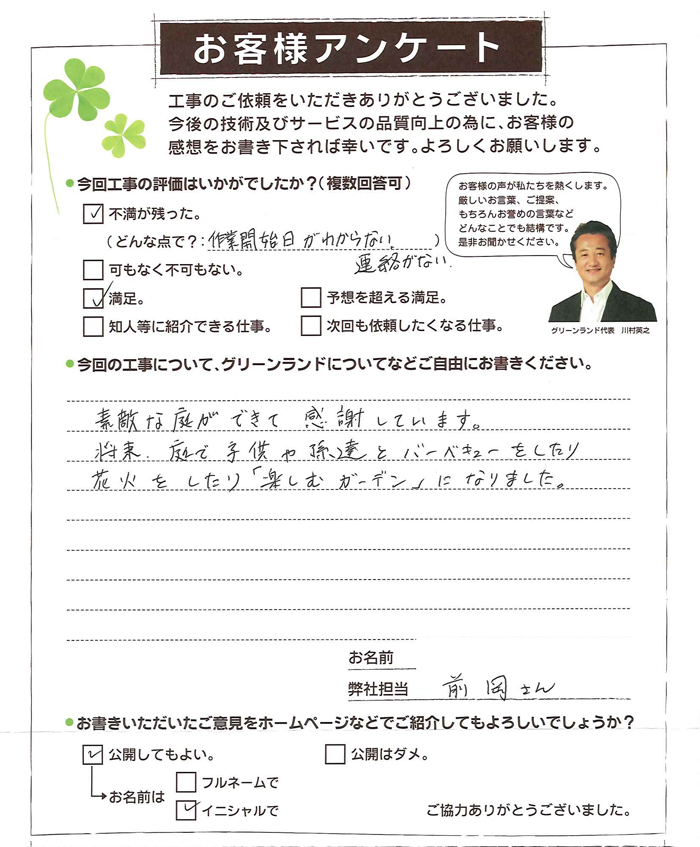 お客様アンケート
工事のご依頼をいただきありがとうございました。
今後の技術及びサービスの品質向上の為に、お客様の
感想をお書き下されば幸いです。よろしくお願いします。
今回工事の評価はいかがでしたか？（複数回答可）
不満が残った。
（どんな点で？：作業開始日がわからない。）
連絡がない。
可もなく不可もない。
満足。
予想を超える満足。
知人等に紹介できる仕事。
次回も依頼したくなる仕事。
お客様の声が私たちを熱くします。
厳しいお言葉、ご提案、
もちろんお誉めの言葉など
どんなことでも結構です。
是非お聞かせください。
グリーンランド代表 川村英之
今回の工事について、グリーンランドについてなどご自由にお書きください。
素敵な庭ができて 感謝しています。
将来、庭で子供や孫達とバーベキューをしたり
花火をしたり「楽しむガーデン」になりました。
お名前
弊社担当 前岡さん
お書きいただいたご意見をホームページなどでご紹介してもよろしいでしょうか？
公開してもよい。
公開はダメ。
お名前は
フルネームで
イニシャルで
ご協力ありがとうございました。